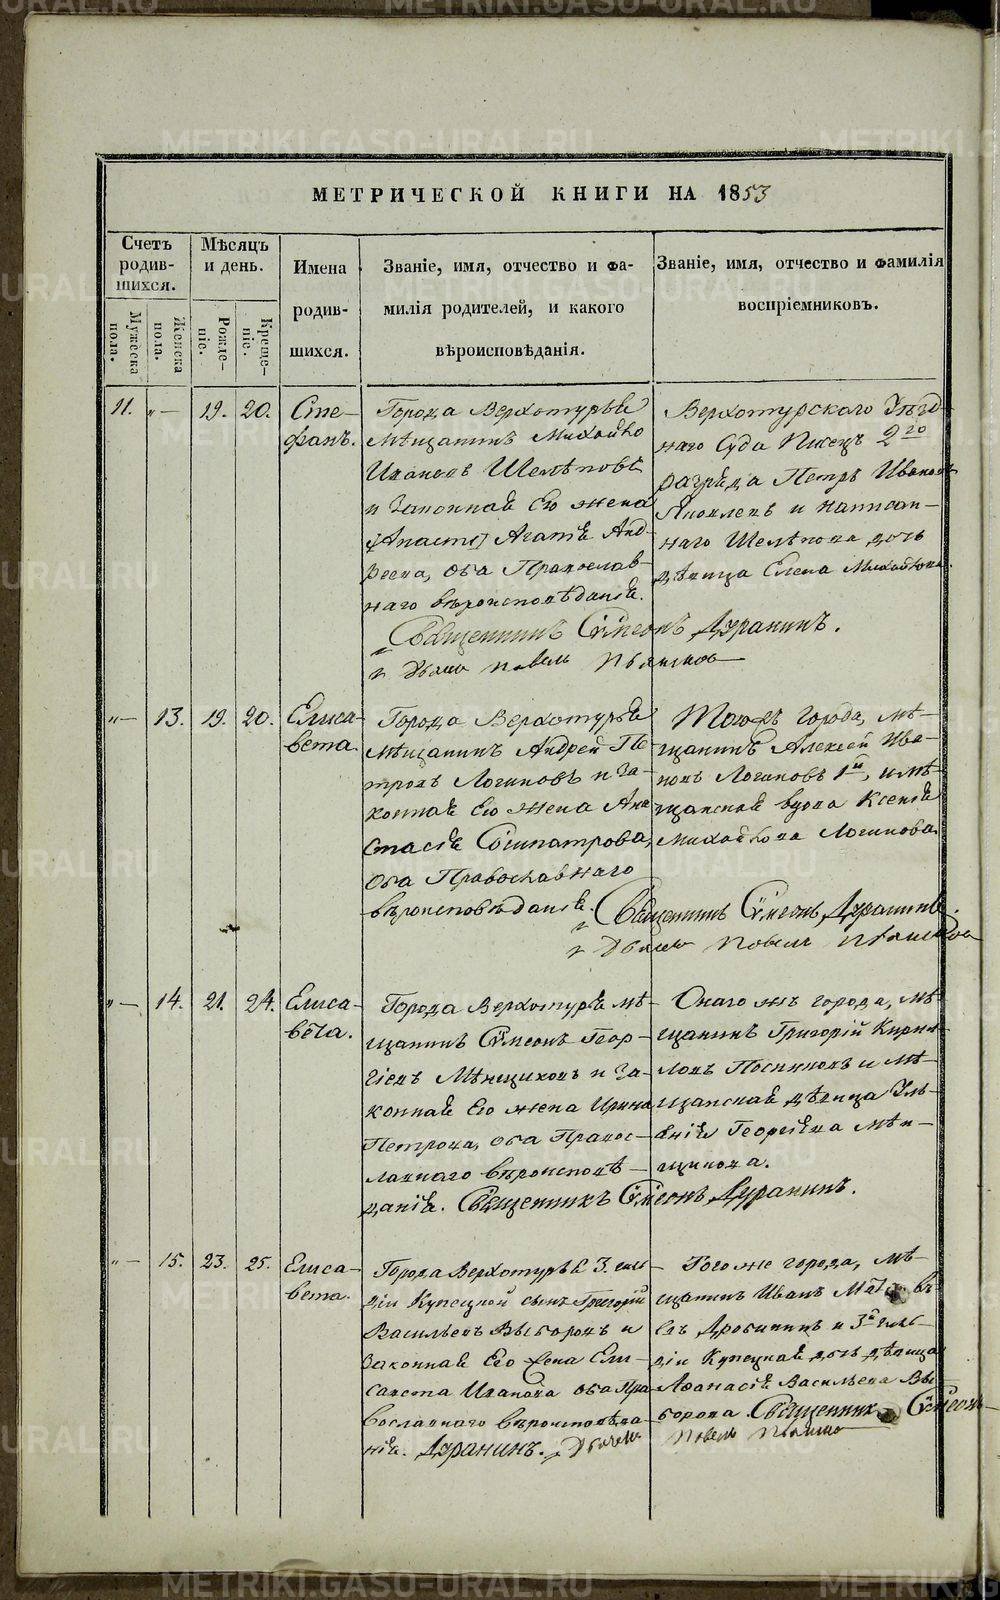 METRIKI.GASO-URAL.RU
МЕТРИЧЕСКОЙ КНИГИ НА 1853
Счетъ родив-шихся.
Мужеска пола.
Женска пола.
Мѣсяцъ и день.
Рожде-ніе.
Креще-ніе.
Имена
родив-
шихся.
Званіе, имя, отчество и фа-
милія родителей, и какого
вѣроисповѣданія.
Званіе, имя, отчество и фамилія
воспріемниковъ.
11. „— 19. 20. Сте-
фанъ.
Города Верхотурья
Мѣщанинъ Михайло
Ивановъ Шелѣповъ
и законная его жена
Агапія Анд-
реева, оба Православ-
наго вѣроисповѣданія.
Верхотурскаго Уѣзд-
наго Суда Писецъ 2го
разряда Петръ Ивановъ
Яковлевъ и написан-
наго Шелѣпова дочь
дѣвица Елена Михайлова.
Священникъ Сѵмеонъ Дерягинъ.
и Дьякъ Павелъ
„— 13. 19. 20. Елиса-
вета.
Города Верхотурья
мѣщанинъ Андрей Пе-
тровъ Логиновъ и за-
конная его жена Ана-
стасія Сосипатрова,
оба Православнаго
вѣроисповѣданія.
Тогожъ города, мѣ-
щанинъ Алексѣй Ива-
новъ Логиновъ 1й, и мѣ-
щанская вдова Ксенія
Михайлова Логинова.
Священникъ Сѵмеонъ
и Дьякъ Павелъ
„— 14. 21. 24. Елиса-
вета.
Города Верхотурья мѣ-
щанинъ Сѵмеонъ Геор-
гіевъ Мѣнщиковъ и за-
конная его жена Ирина
Петрова, оба Правос-
лавнаго вѣроисповѣ-
данія. Священникъ Сѵмеонъ
Онаго жъ города, мѣ-
щанинъ Григорій Кирил-
ловъ Постниковъ и мѣ-
щанская дѣвица Улья-
нія Георгіева Мѣн-
щикова.
„— 15. 23. 25. Елиса-
вета.
Города Верхотурья 3. гиль-
діи Купецкой сынъ Григорій
Васильевъ Выборовъ и
законная его жена Ели-
савета Иванова оба Пра-
вославнаго вѣроисповѣда-
нія.
Того же города, мѣ-
щанинъ Иванъ
Дробининъ и 3й гиль-
діи Купецкая дочь дѣвица
Афанасія Васильева Вы-
борова. Священникъ Сѵмеонъ
Дьячекъ Павелъ